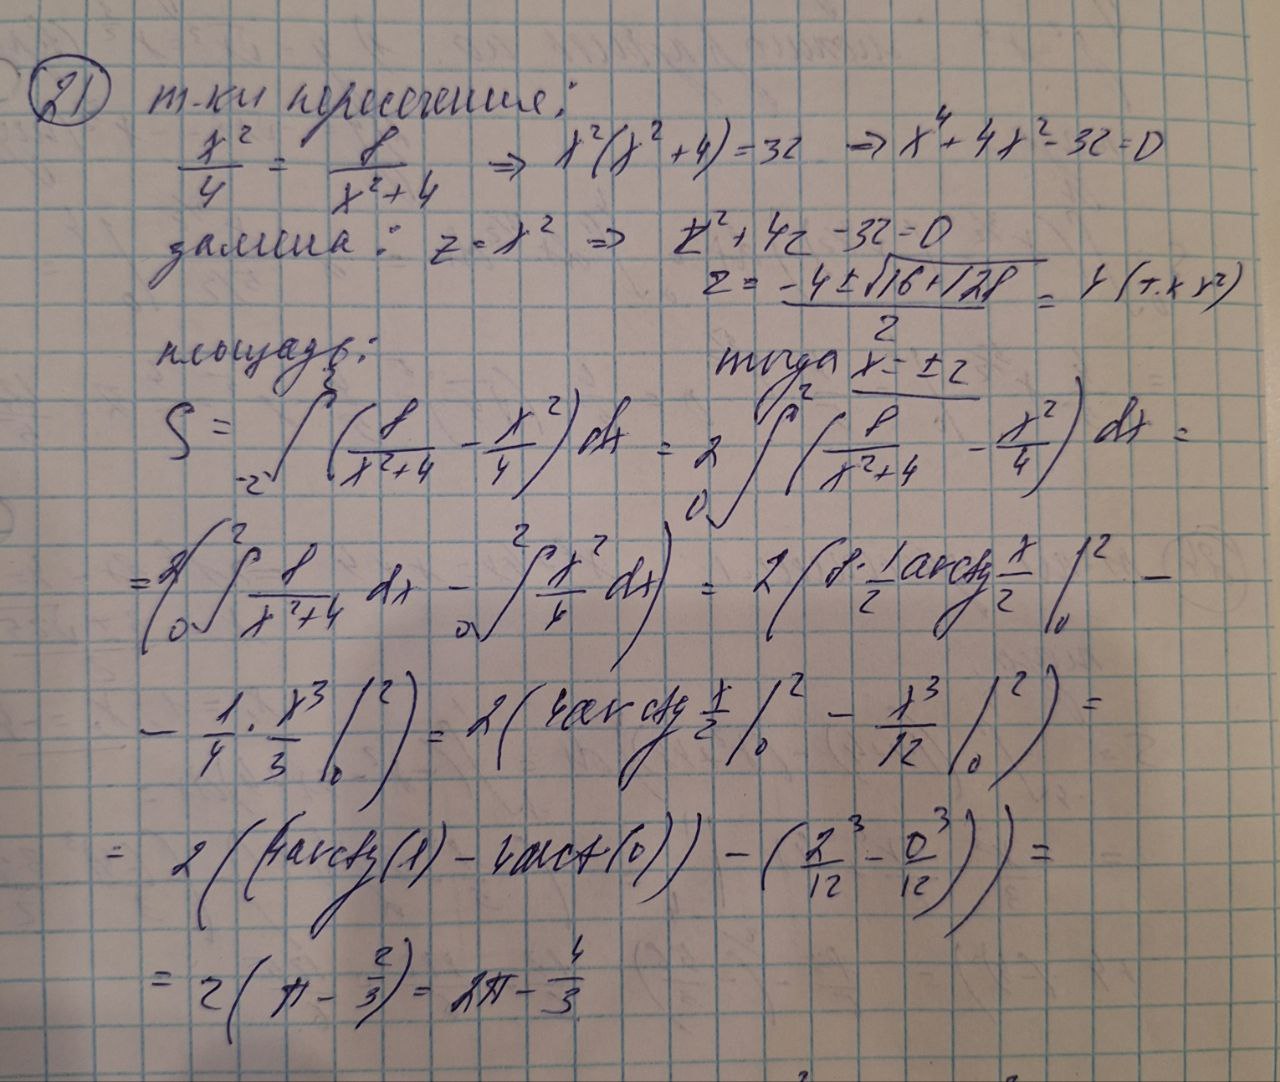 21 т-ки пересечения:
x²/4 = 8/(x²+4) ⇒ x²(x²+4) = 32 ⇒ x⁴ + 4x² - 32 = 0
замена: z = x² ⇒ z² + 4z - 32 = 0
z = (-4 ± √(16+128))/2 = 4 (т.к x²)
площадь: тогда x = ±2
S = ∫₋₂² (8/(x²+4) - x²/4) dx = 2 ∫₀² (8/(x²+4) - x²/4) dx =
= 2(∫₀² 8/(x²+4) dx - ∫₀² x²/4 dx) = 2(8·1/2 arctg x/2 |₀² -
- 1/4 · x³/3 |₀²) = 2(4arctg x/2 |₀² - x³/12 |₀²) =
= 2((4arctg(1) - 4arct(0)) - (2³/12 - 0³/12)) =
= 2(π - 2/3) = 2π - 4/3